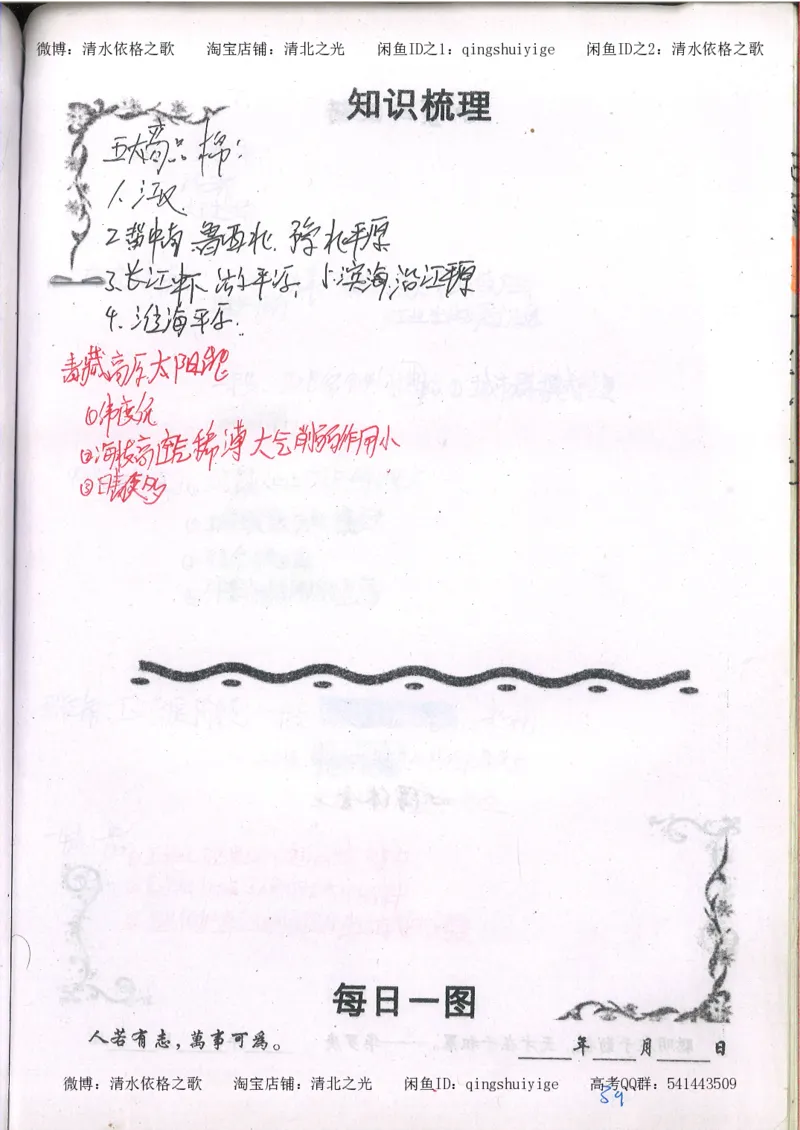 微博：清水依格之歌 淘宝店铺：清北之光 闲鱼ID之1：qingshuiyige 闲鱼ID之2：清水依格之歌
知识梳理
五大商品棉：
1.江汉
2.冀中南.鲁西北.豫北平原
3.长江中下游平原、滨海沿江平原
4.淮海平原.
青藏高原太阳能
①纬度低
②海拔高空气稀薄大气削弱作用小
③晴天多
每日一图
人若有志，萬事可為。
年 月 日
微博：清水依格之歌 淘宝店铺：清北之光 闲鱼ID：qingshuiyige 高考QQ群：541443509
59